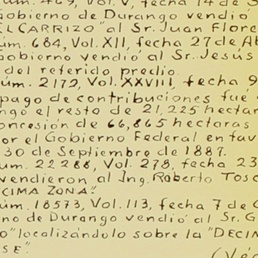 úm. 469, Vol. V, fecha 14 de S
Gobierno de Durango vendió
EL CARRIZO" al Sr. Juan Flore
úm. 684, Vol. XII, fecha 27 de Ab
Gobierno vendió al Sr. Jesús
del referido predio.
úm. 2179, Vol. XXVIII, fecha 9
pago de contribuciones fué
ngó el resto de 21,225 hectar
oncesión de 66,865 hectaras
por el Gobierno Federal en fav
30 de Septiembre de 1887.
úm. 22288, Vol. 278, fecha 23
vendieron al Ing. Roberto Tosc
CIMA ZONA".
úm. 18573, Vol. 113, fecha 7 de
no de Durango vendió al Sr. G
O" localizándolo sobre la "DECIN
SE".
(Vé